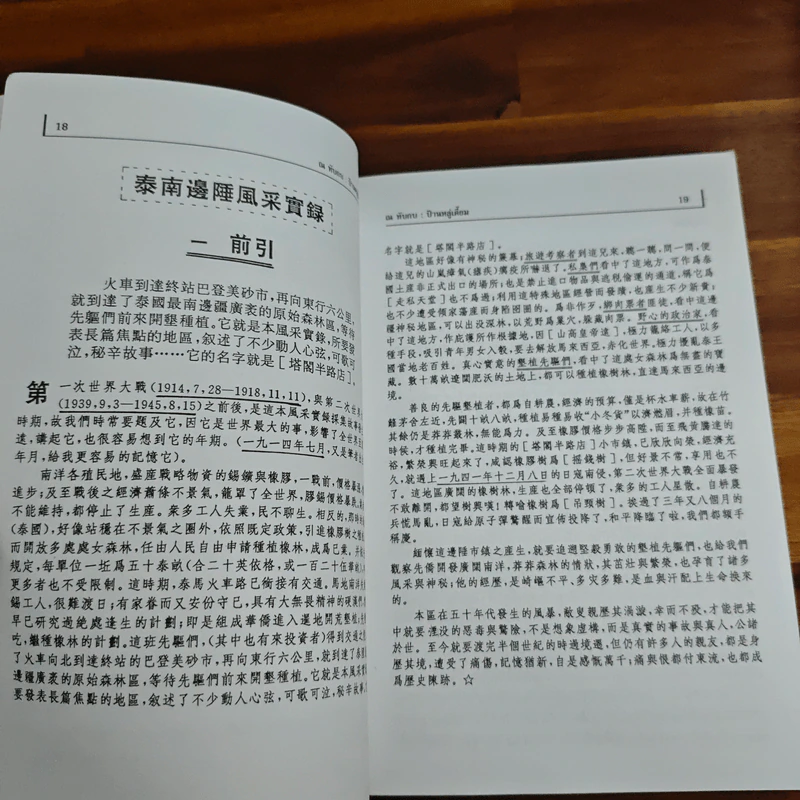 18
ณ ทับกบ : บ้าน
泰南邊陲風采實録
一 前引
火車到達終站巴登美砂市，再向東行六公里，
就到達了泰國最南邊疆廣袤的原始森林區，等待
先驅們前來開墾種植。它就是本風采實錄，所要發
表長篇焦點的地區，叙述了不少動人心弦，可歌可
泣，秘辛故事……它的名字就是［塔閣半路店］。
第 一次世界大戰（1914,7,28—1918,11,11），與第二次世界
（1939,9,3—1945,8,15）之前後，是這本風采實錄採集故事
時期，故我們時常要題及它，因它是世界最大的事，影響了全世界
遠，講起它，也很容易想到它的年期。（一九一四年七月，又是筆者
年月，給我更容易的記憶它）。
南洋各殖民地，盛産戰略物資的錫鑛與橡膠，一戰前，價格
進步；及至戰後之經濟蕭條不景氣，籠罩了全世界，膠錫價格暴跌，
不能維持，都停止了生産。衆多工人失業，民不聊生。相反的，
（泰國），好像站穩在不景氣之圈外，依照既定政策，引進橡膠
而開放多處處女森林，任由人民自由申請種植橡林，成爲巴業，
規定，每單位一坵爲五十泰畝（合二十英依格，或一百二十伍
更多者也不受限制。這時期，泰馬火車路已銜接有交通。馬地南洋
錫工人，很難渡日；有家眷而又安份守已，具有大無畏精神的硬漢
早已研究過絶處逢生的計劃；即是組成華僑進入暹地開荒墾植；
吃，繼種橡林的計劃。這班先驅們，（其中也有來投資者）得到交通之
了火車向北到達終站的巴登美砂市，再向東行六公里，就到達了泰
邊疆廣袤的原始森林區，等待先驅們前來開墾種植。它就是本風采實
要發表長篇焦點的地區，叙述了不少動人心弦，可歌可泣，秘辛故事
ณ ทับกบ : บ้านหมู่เตี้ยม
19
名字就是［塔閣半路店］。
這地區好像有神秘的簾幕；旅遊考察者到這兒來，聽一聽，問一問，便
給這兒的山嵐瘴氣（瘧疾）瘼疫所嚇退了，私梟們看中了這地方，可作爲泰
國土産非正式出口的場所；也是禁止進口物品與逃税偷運的通道，稱它爲
［走私天堂］也不爲過；利用這特殊地區經營而發積，也産生不少新貴；
也不少遭受傾家蕩産而身陷囹圄的。爲非作歹，綁肉票者匪徒，看中這邊
疆神秘地區，可以出設深林，以荒野爲巢穴，躲藏肉票。野心的政治家，看
中了這地方，作庇護所作根據地，因［山高皇帝遠］，極力籠絡工人，以多
種手段，吸引青年男女入殼，要去解放馬來西亞，赤化世界。極力擾亂泰王
國當地老百姓。真心實意的墾植先驅們，看中了這處女森林爲無盡的寶
藏。數十萬的邊闊肥沃的土地上，都可以種植橡樹林，直達馬來西亞的邊
境。
善良的先驅墾植者，都爲自耕農，經濟的預算，僅是杯水車薪，故在竹
籬茅舍左近，先闢十的八畝，種植易種易收“小冬賓”以濟燃眉，并種橡苗。
其餘仍是莽莽叢林，無能爲力。及至橡膠價格步步高陞，而至飛黃騰達的
時候，才種植完畢。這時期的［塔閣半路店］小市鎮，已欣欣向榮，經濟充
裕，繁榮興旺起來了，咸認橡膠樹爲［摇錢樹］，但好景不常，享用也不
久，就遇上一九四一年十二月八日的日寇南侵，第二次世界大戰全面暴發
了。這地區廣闊的橡樹林，生産也全部停頓了，衆多的工人星散。自耕農
不敢離開，都望樹興嘆！轉喻橡樹爲［吊頸樹］。挨過了三年又八個月的
兵慌馬亂，日寇給原子彈驚醒而宣佈投降了，和平降臨了啦，我們都額手
稱慶。
緬懷這邊陲市鎮之産生，就要追溯堅毅勇敢的墾植先驅們，也給我們
觀察先僑開發廣闊南洋，莽莽森林的情狀，其茁壯與繁榮，也孕育了諸多
風采與神秘；他的經歷，是崎嶇不平，多灾多難，是血與汗配上生命換來
的。
本區在五十年代發生的風暴，敝叟親歷其渦漩，幸而不殁，才能把其
中就要湮没的惡毒與驚險，不是想象虛構，而是真實的事故與真人，公諸
於世。至今就要渡完半個世紀的時過境遷，但仍有許多人的親友，都是身
歷其境，遭受了痛傷，記憶猶新，自是感慨萬千；痛與恨都付東流，也都成
爲歷史陳跡。☆